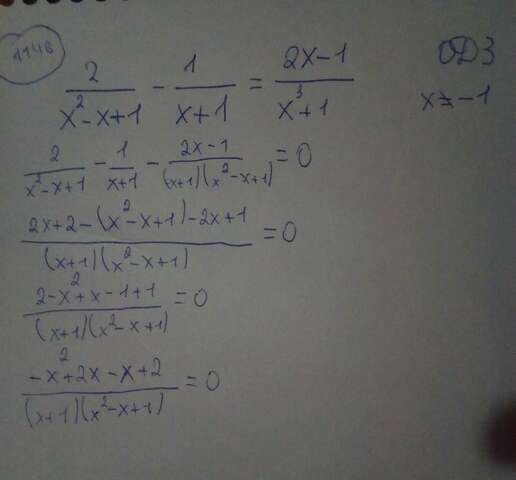 1148
2/(x²-x+1) - 1/(x+1) = (2x-1)/(x³+1) ОДЗ
x≠-1
2/(x²-x+1) - 1/(x+1) - (2x-1)/((x+1)(x²-x+1)) = 0
(2x+2-(x²-x+1)-2x+1)/((x+1)(x²-x+1)) = 0
(2-x²+x-1+1)/((x+1)(x²-x+1)) = 0
(-x²+2x-x+2)/((x+1)(x²-x+1)) = 0